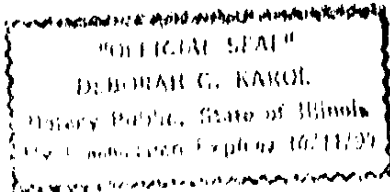 "OFFICIAL SEAL"
DEBORAH G. KAROL
Notary Public, State of Illinois
My Commission Expires